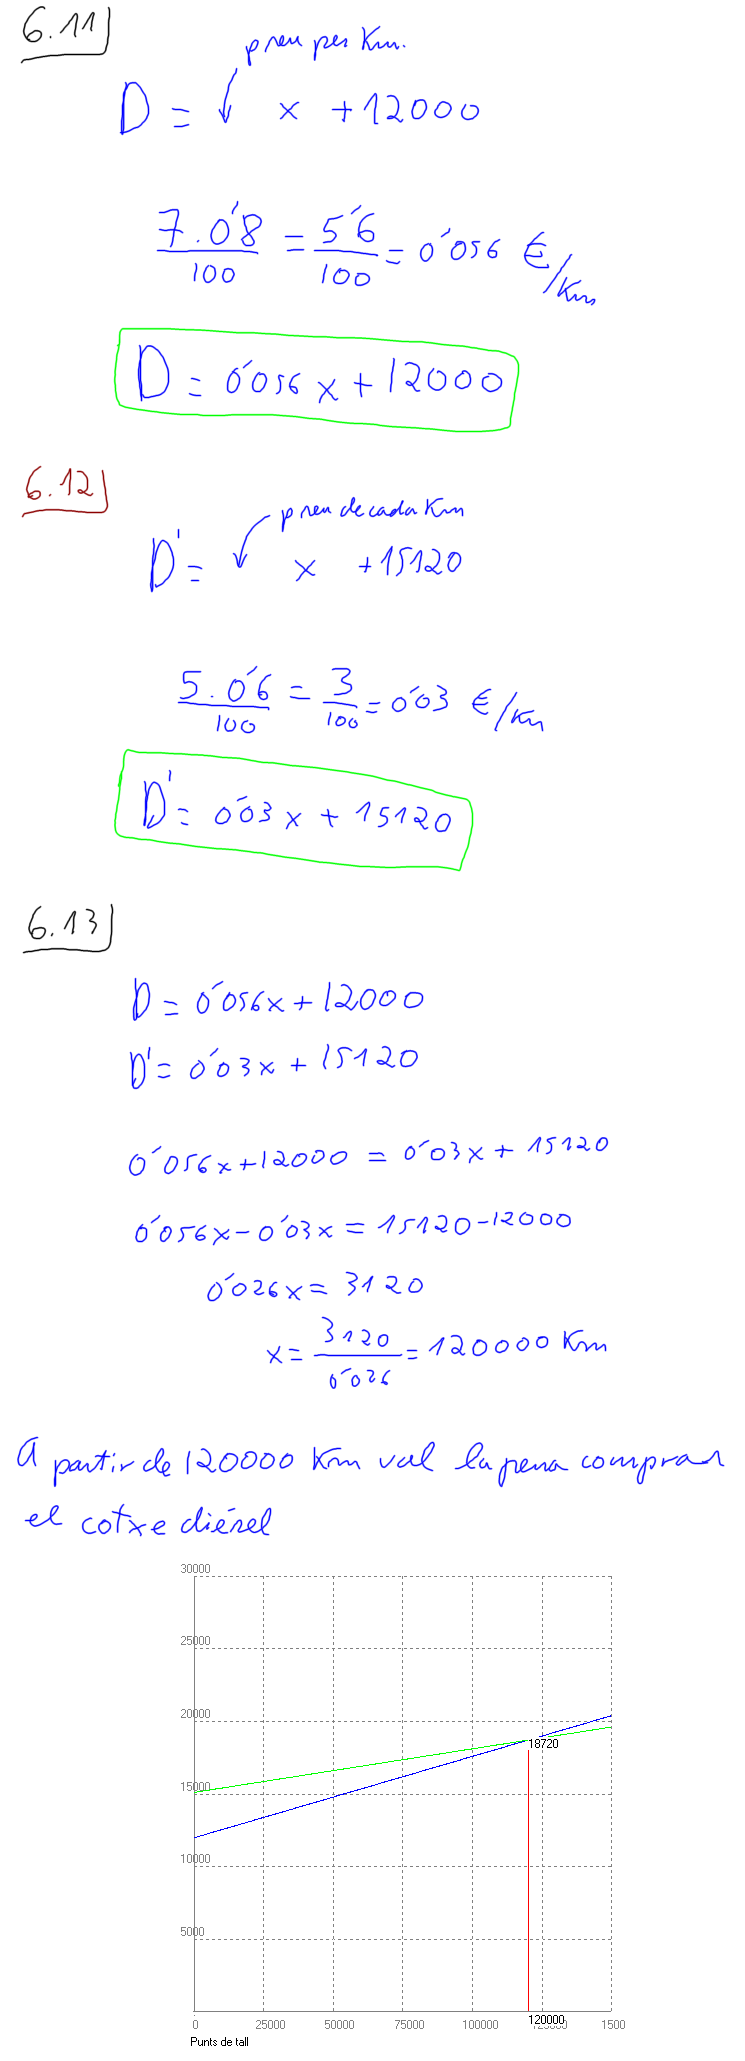 6.11
preu per Km.
D = x + 12000
7·0'8/100 = 5'6/100 = 0'056 €/Km
D = 0'056x + 12000
6.12
preu de cada Km
D' = x + 15120
5·0'6/100 = 3/100 = 0'03 €/Km
D' = 0'03x + 15120
6.13
D = 0'056x + 12000
D' = 0'03x + 15120
0'056x + 12000 = 0'03x + 15120
0'056x - 0'03x = 15120 - 12000
0'026x = 3120
x = 3120/0'026 = 120000 Km
A partir de 120000 Km val la pena comprar
el cotxe diésel
30000
25000
20000
18720
15000
10000
5000
0 25000 50000 75000 100000 120000 1500
Punts de tall